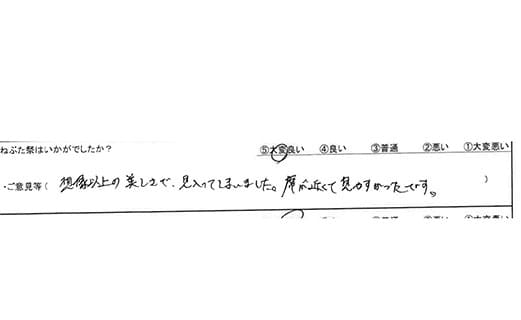 ねぶた祭はいかがでしたか? ⑤大変良い ④良い ③普通 ②悪い ①大変悪い
・ご意見等( 想像以上の美しさで、見入ってしまいました。席が近くて見やすかったです。 )